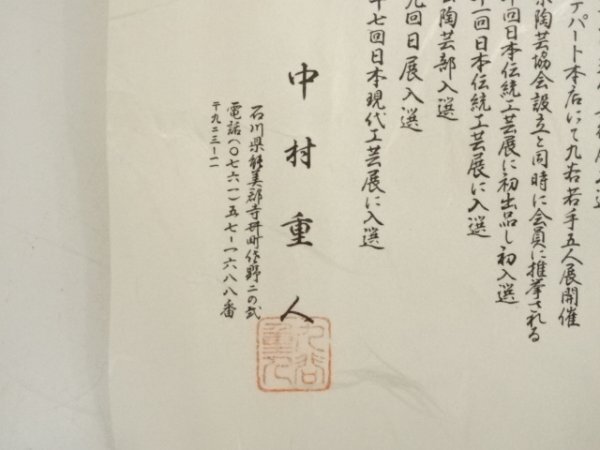 デパート本店にて九谷若手五人展開催
陶芸協会設立と同時に会員に推挙される
回日本伝統工芸展に初出品し初入選
一回日本伝統工芸展に入選
陶芸部入選
九回日展入選
十七回日本現代工芸展に入選
中村重人
石川県能美郡寺井町佐野ニの弐
電話(〇七六一)五七ー一六八八番
〒九二三ー一一
九谷
重人